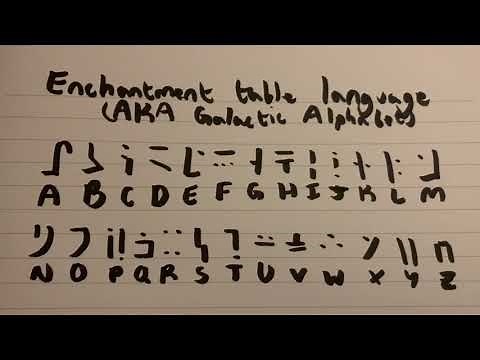 Enchantment table language
(AKA Galactic Alphabet)
A B C D E F G H I J K L M
N O P Q R S T U V W X Y Z